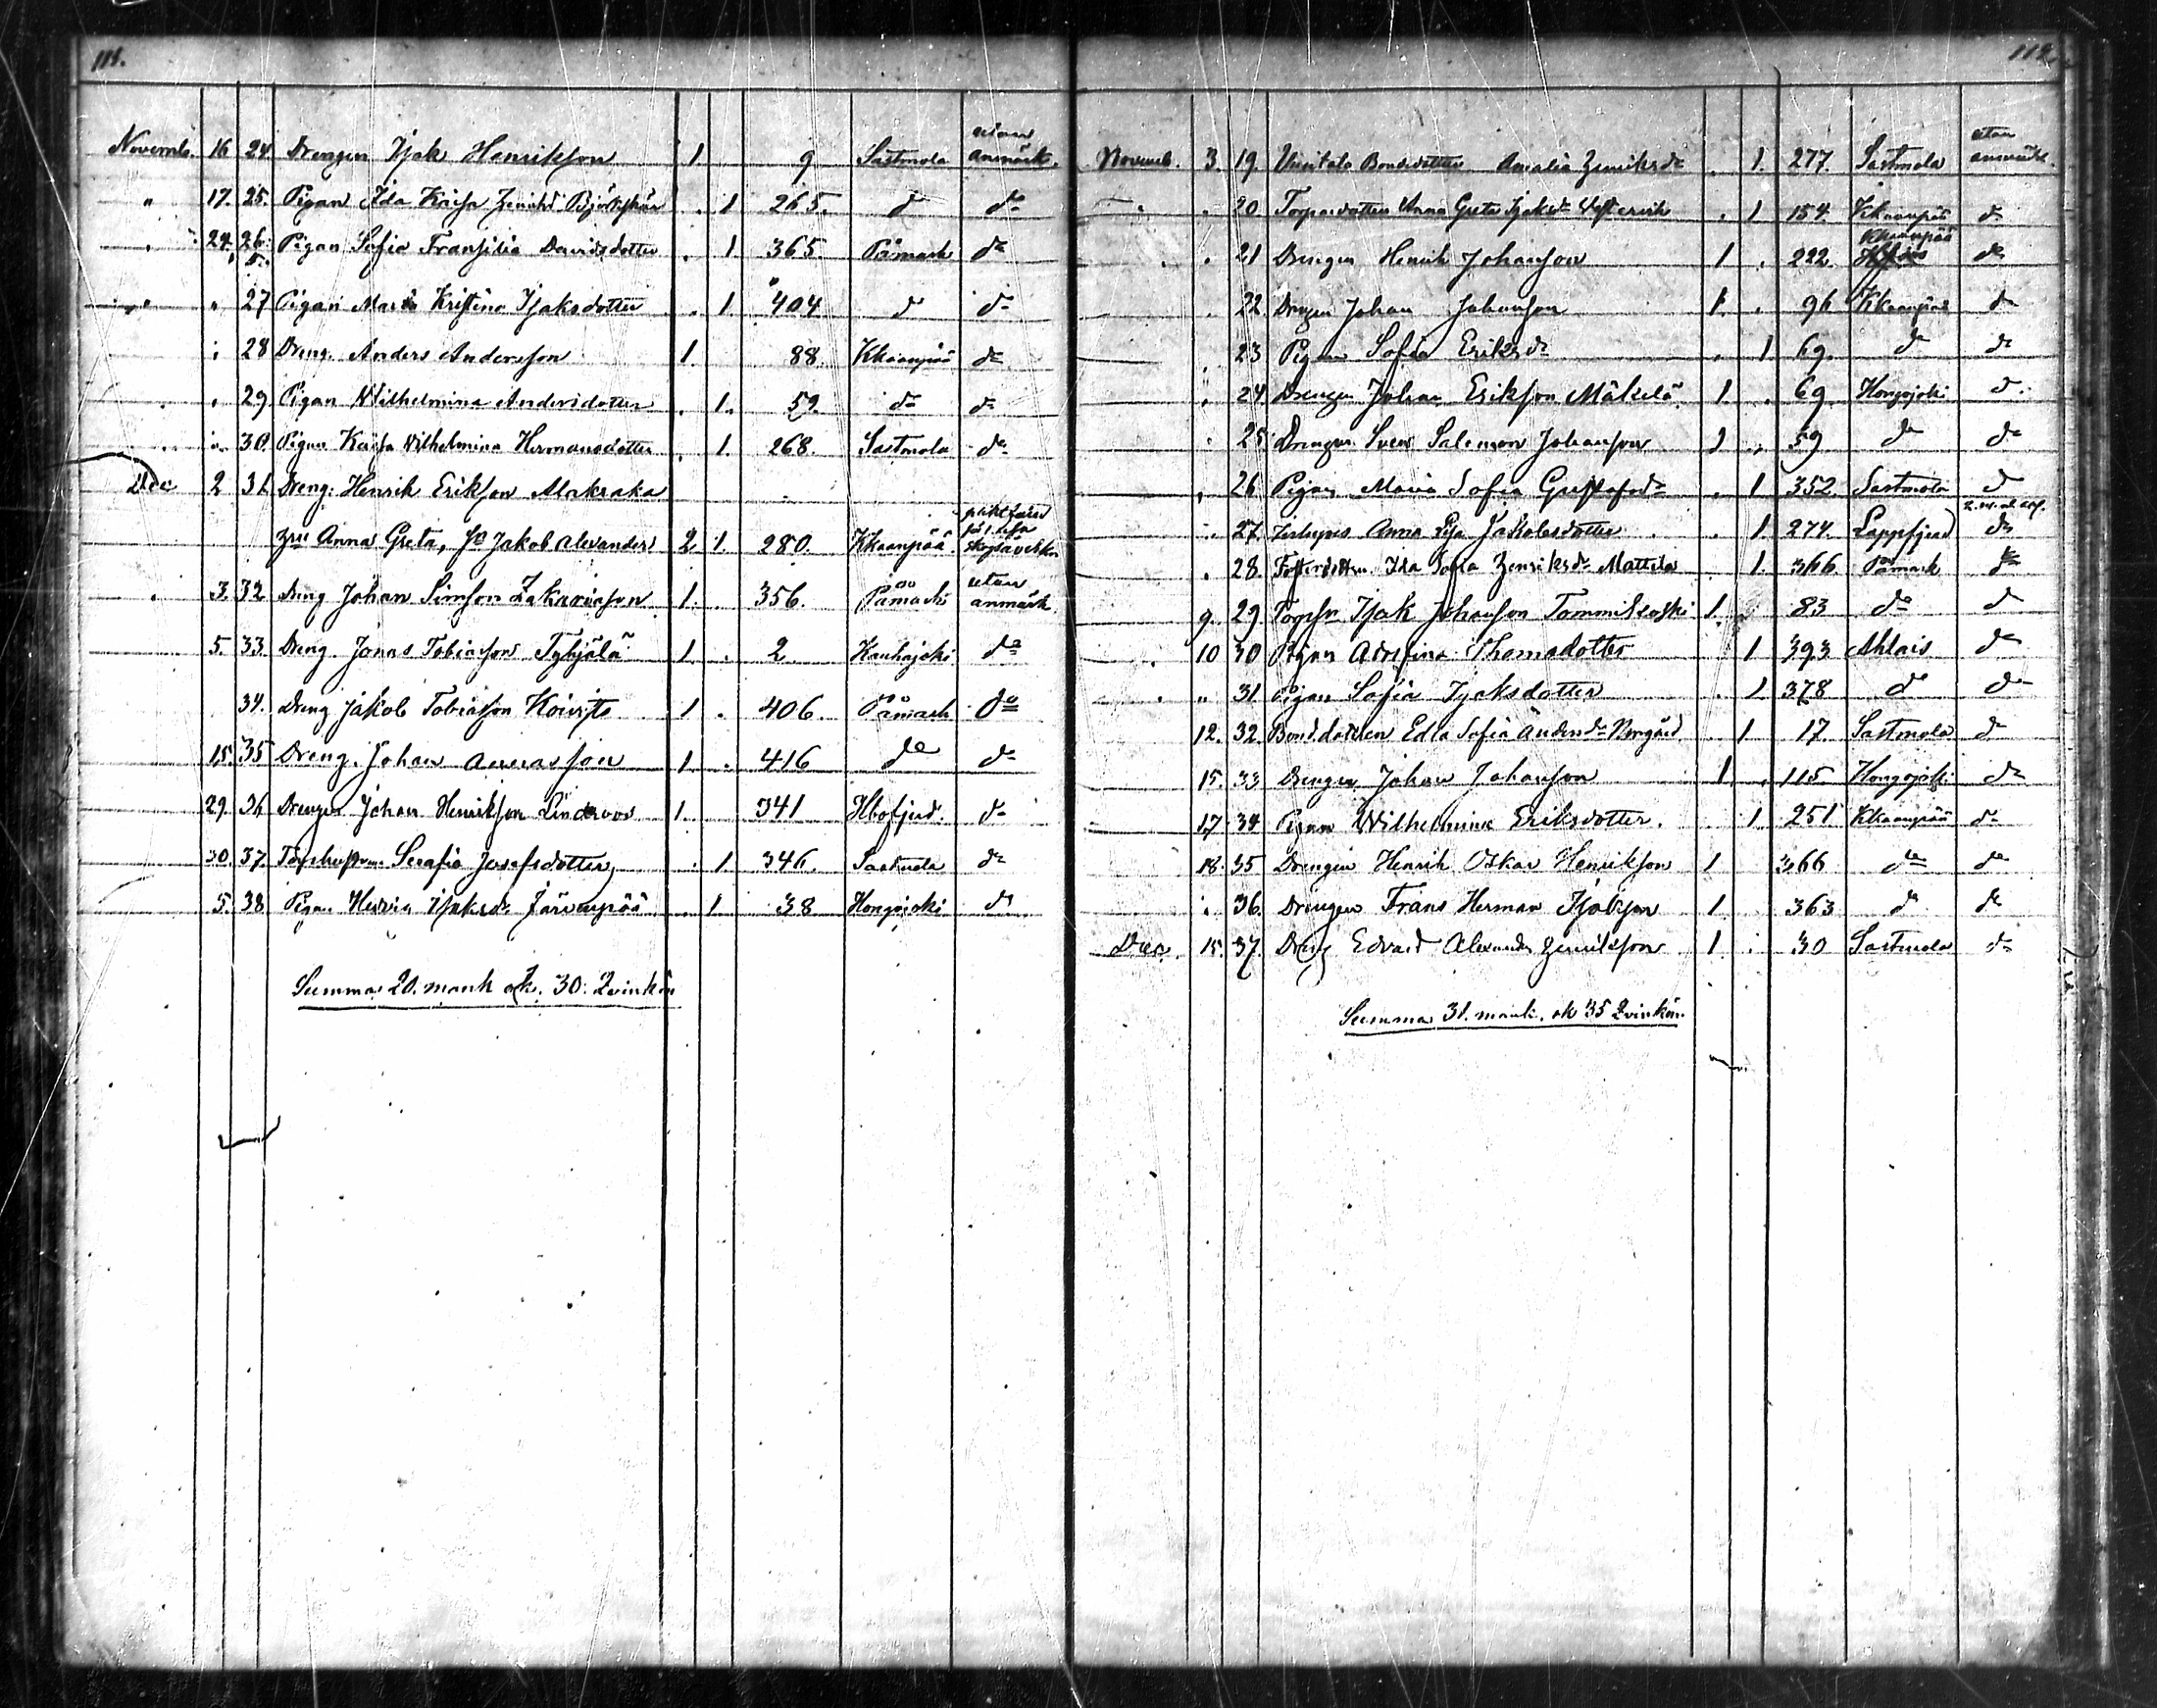 111.
Novemb. 16 24 Drengen Isak Henriksson 1 9 Sastmola utan anmärk.
" 17. 25. Pigan Ida Kaisa Henriksd Björkskär . 1 265. do do
" 24. 26. Pigan Sofia Fransilia Davidsdotter . 1 365. Påmark do
" " 27 Pigan Maria Kristina Isaksdotter . 1. 404 do do
" 28 Dreng. Anders Andersson 1. 88. Kkaanpää do
" 29 Pigan Wilhelmina Andersdotter . 1. 59. do do
" 30. Pigan Kaisa Wilhelmina Hermansdotter . 1. 268. Sastmola do
Dec 2 31. Dreng. Henrik Eriksson
Anna Greta, Jakob Alexander 2 1. 280. Kkaanpää
3. 32 Dreng Johan Simson Zakariasson 1. . 356. Påmark utan anmärk.
5. 33. Dreng. Jonas Tobiasson 1 . 2. Kauhajoki do
34. Dreng Jakob Tobiasson Koivisto 1 . 406. Påmark do
15. 35 Dreng. Johan 1 . 416 do do
29. 36 Drengen Johan Henriksson Lindroos 1. 341 do
30. 37. Serafia Josefsdotter . 1. 346. Sastmola do
5. 38 Pigan Isaksd. Järvenpää . 1 38 Hongojoki do
Summa 20. mank. ok. 30. Qvinkön
112
Novemb. 3. 19. Bondedotter Amalia Henriksdr . 1. 277. Sastmola utan anmärk.
. 20 Torparedotter Anna Greta Isaksdr . 1 154. Kkaanpää do
Kkaanpää
. 21 Drengen Henrik Johansson 1 . 222. do
. 22. Drengen Johan Johansson 1. . 96 Kkaanpää do
23 Pigan Sofia Eriksdr . 1 69. do do
. 24. Drengen Johan Eriksson Mäkelä 1. . 69 Hongojoki do
. 25. Drengen Sven Salomon Johansson 1 . 59 do do
. 26 Pigan Maria Sofia Gustafsdr . 1 352. Sastmola do
. 27. Anna Lisa Jakobsdotter . 1. 274. Lappfjärd do
. 28. Ida Sofia Henriksdr Mattila 1. 366 Påmark do
9. 29. Isak Johansson Tommikoski 1. 83 do do
10 30 Pigan Adolfina Thomasdotter 1 393 Ahlais do
" 31 Pigan Sofia Isaksdotter . 1 378 do do
12. 32. Bondedotteren Edla Sofia Andersdr Norrgård 1 17. Sastmola do
15. 33 Drengen Johan Johansson 1 . 115 Hongojoki do
17 34 Pigan Wilhelmina Eriksdotter. 1 251 Kkaanpää do
18. 35 Drengen Henrik Oskar Henriksson 1 366 do do
. 36. Drengen Frans Herman Isaksson 1. 363 do do
Dec. 15. 37. Dreng Edvard Alexander Henriksson 1 . 30 Sastmola do
Summa 31. mank. ok 35 Qvinkön.